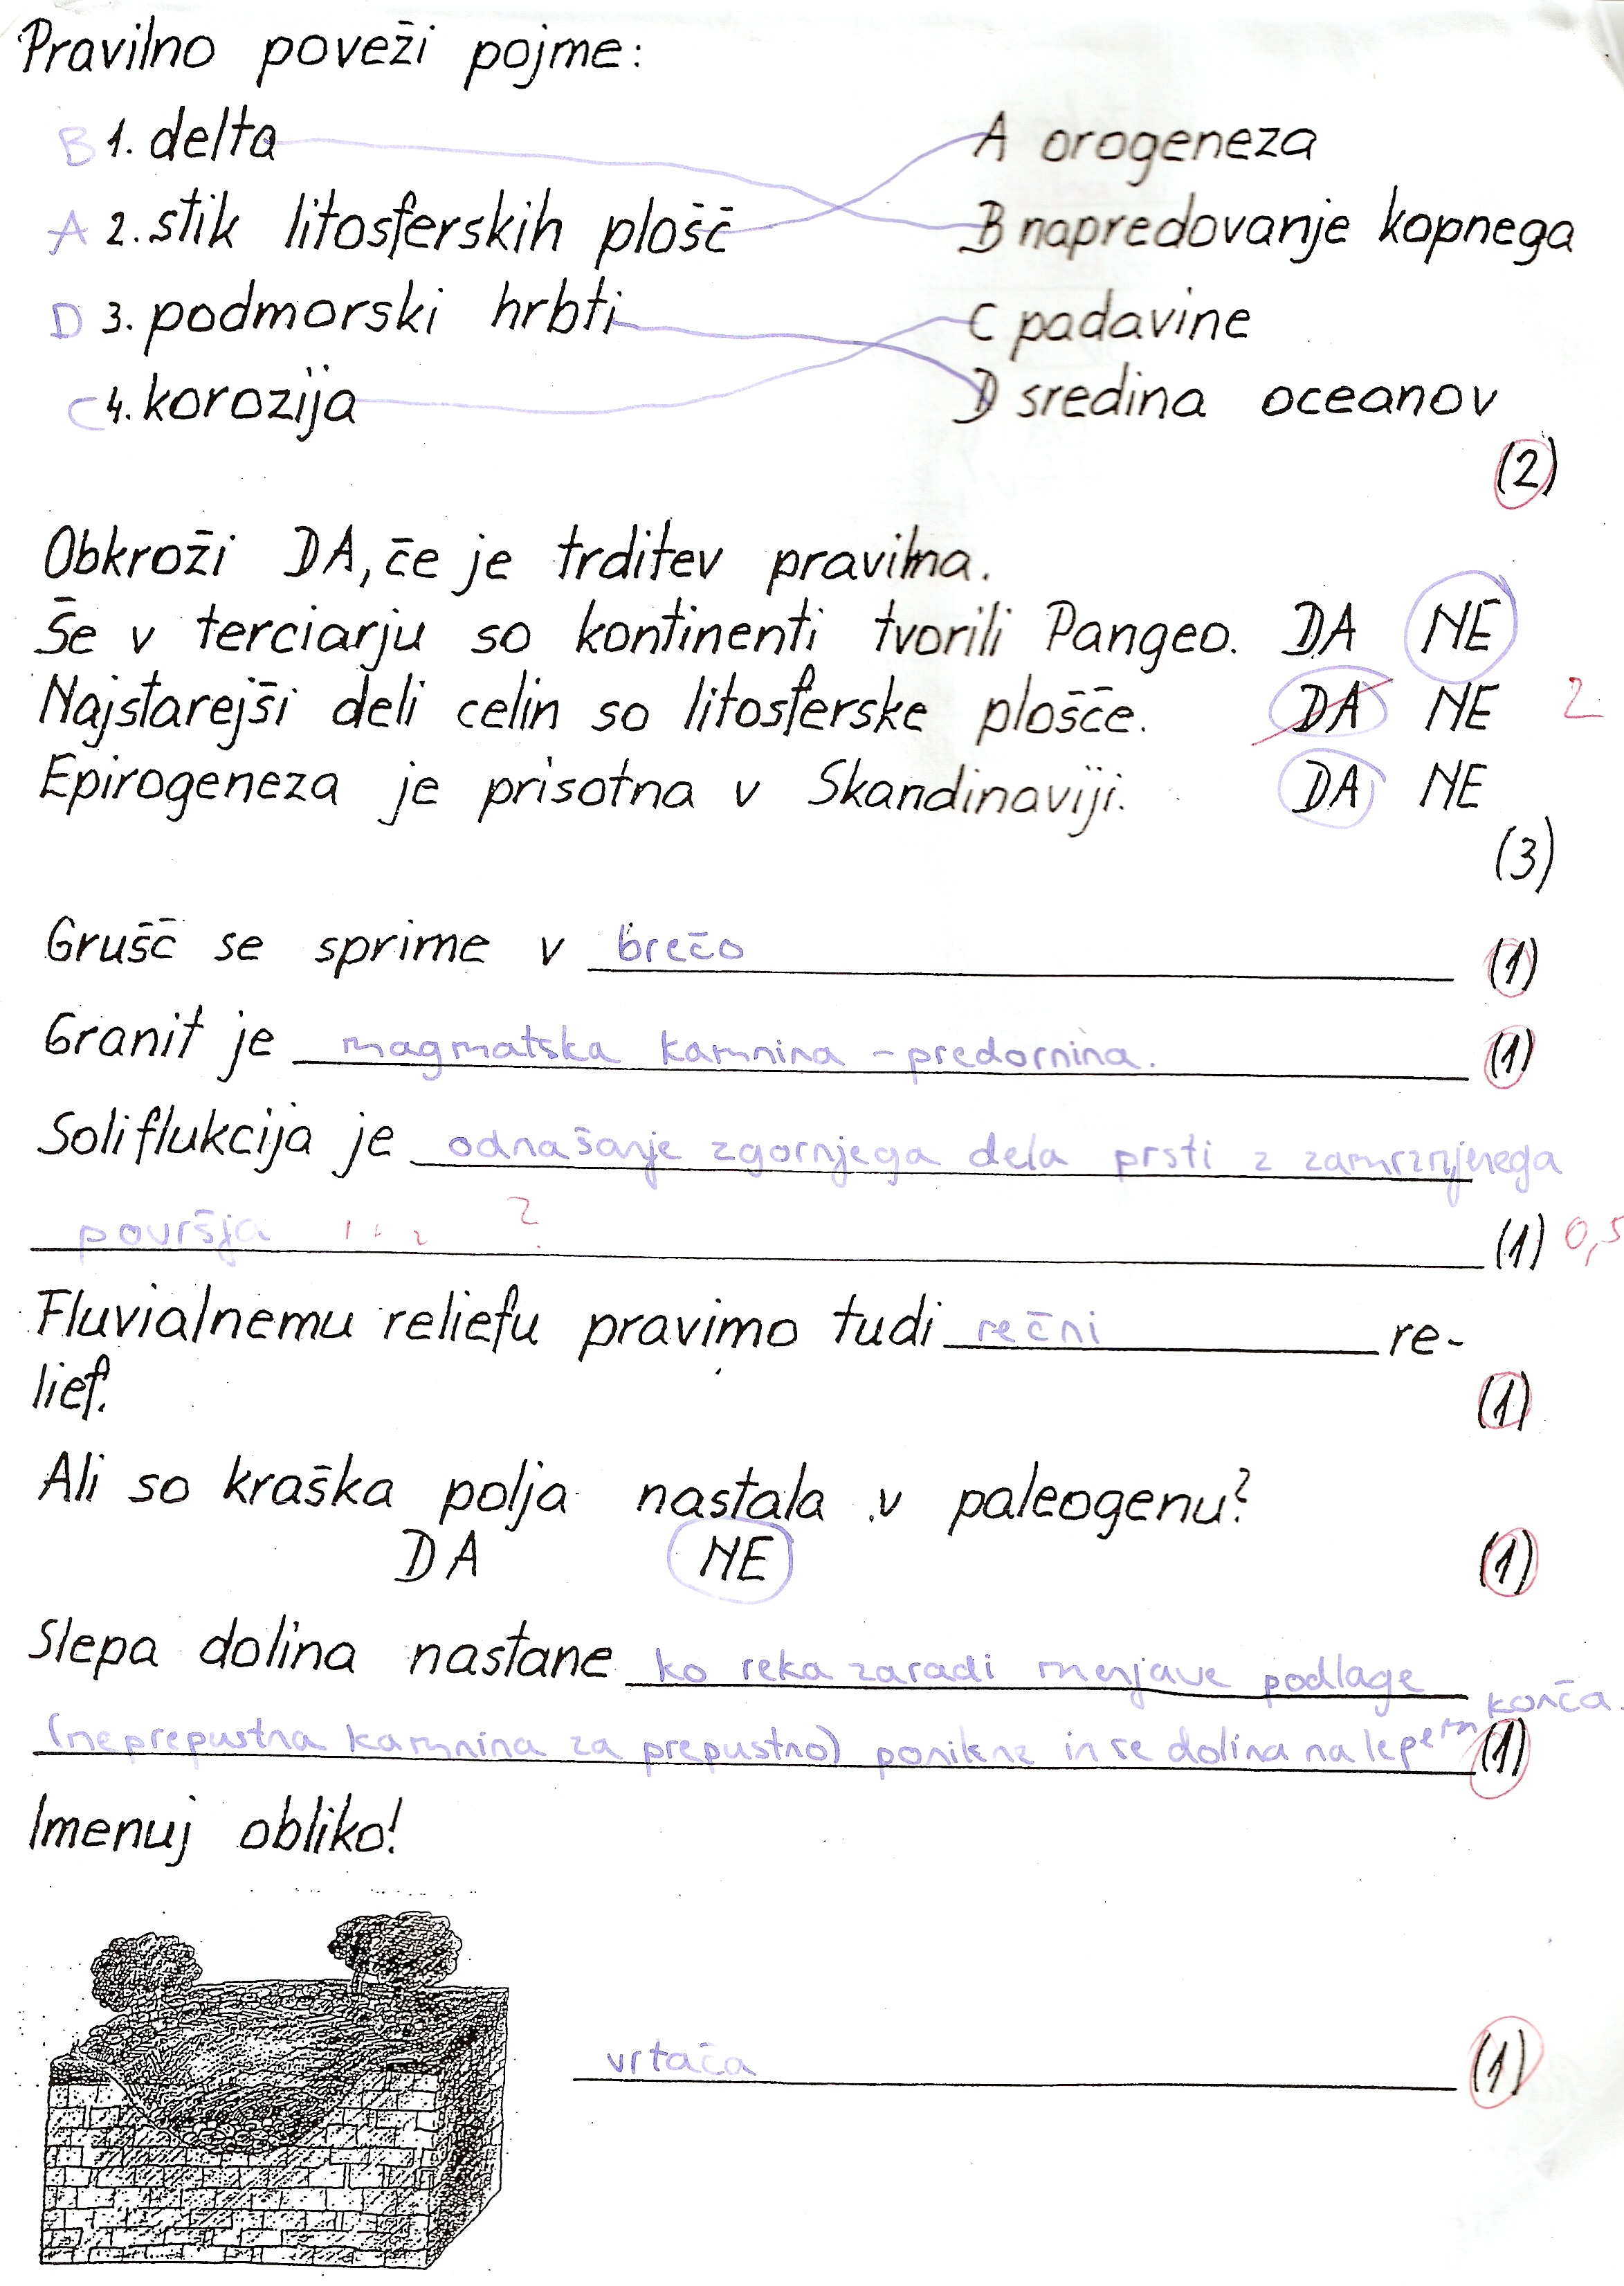 Pravilno poveži pojme:
B 1. delta A orogeneza
A 2. stik litosferskih plošč B napredovanje kopnega
D 3. podmorski hrbti C padavine
C 4. korozija D sredina oceanov
(2)
Obkroži DA, če je trditev pravilna.
Še v terciarju so kontinenti tvorili Pangeo. DA NE
Najstarejši deli celin so litosferske plošče. DA NE 2
Epirogeneza je prisotna v Skandinaviji. DA NE
(3)
Grušč se sprime v brečo (1)
Granit je magmatska kamnina - predornina. (1)
Soliflukcija je odnašanje zgornjega dela prsti z zamrznjenega
površja ? (1) 0,5
Fluvialnemu reliefu pravimo tudi rečni re-
lief. (1)
Ali so kraška polja nastala v paleogenu?
DA NE (1)
Slepa dolina nastane ko reka zaradi menjave podlage
(neprepustna kamnina za prepustno) ponikne in se dolina na lepem konča. (1)
Imenuj obliko!
vrtača (1)